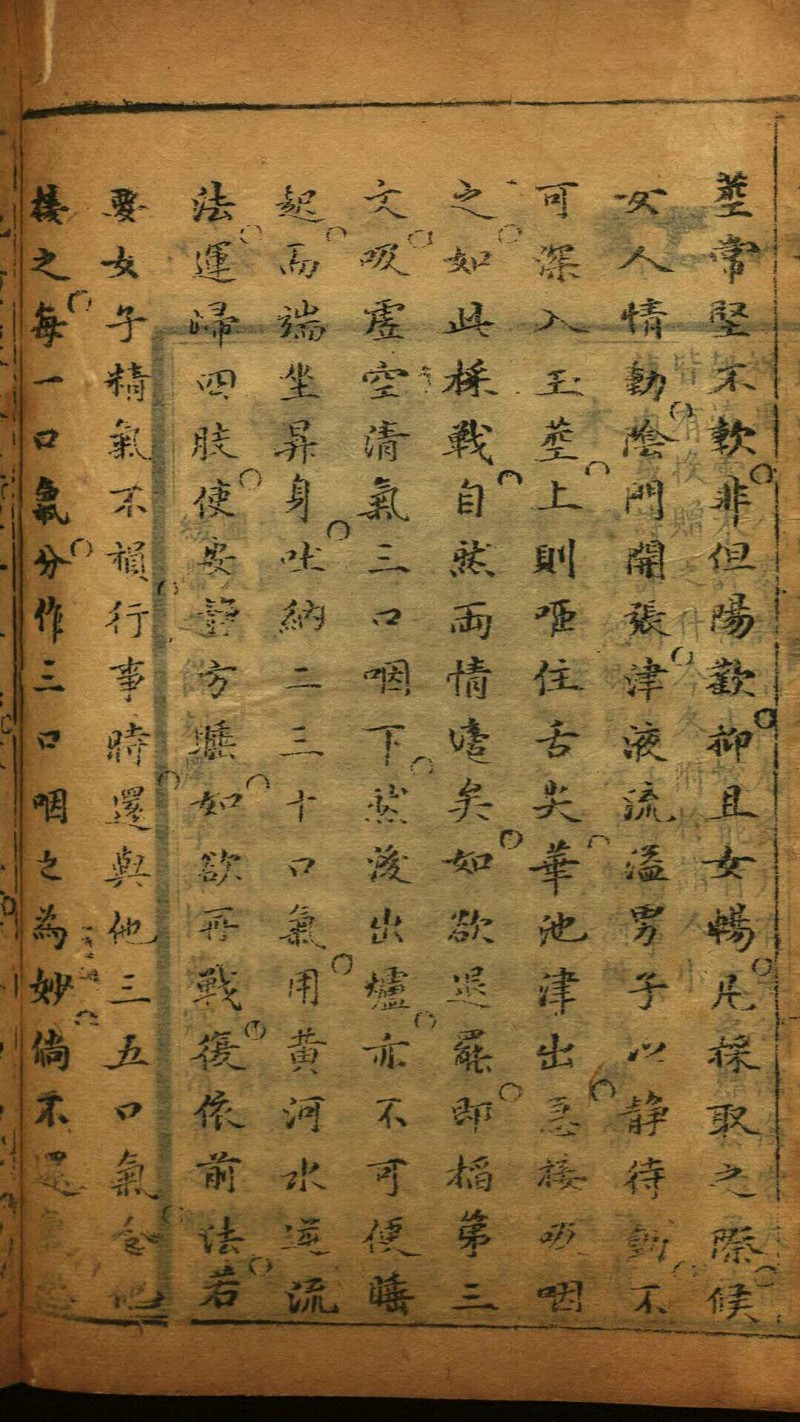 莖常堅不軟非但陽歡抑且女暢凡採取之際候
女人情動陰門開張津液流溢男子以静待動不
可深入玉莖上則咂住舌尖華池津出急接吸咽
之如此採戰自然両情濃矣如欲退罷即搯第三
文吸虚空清氣三口咽下然後出爐亦不可便睡
起而端坐昇身吐納二三十口氣用黄河水逆流
法運歸四肢使安静方睡如欲再戰復依前法若
要女子精氣不損行事時還與他三五口氣令他
接之每一口氣分作三口咽之為妙倘不還